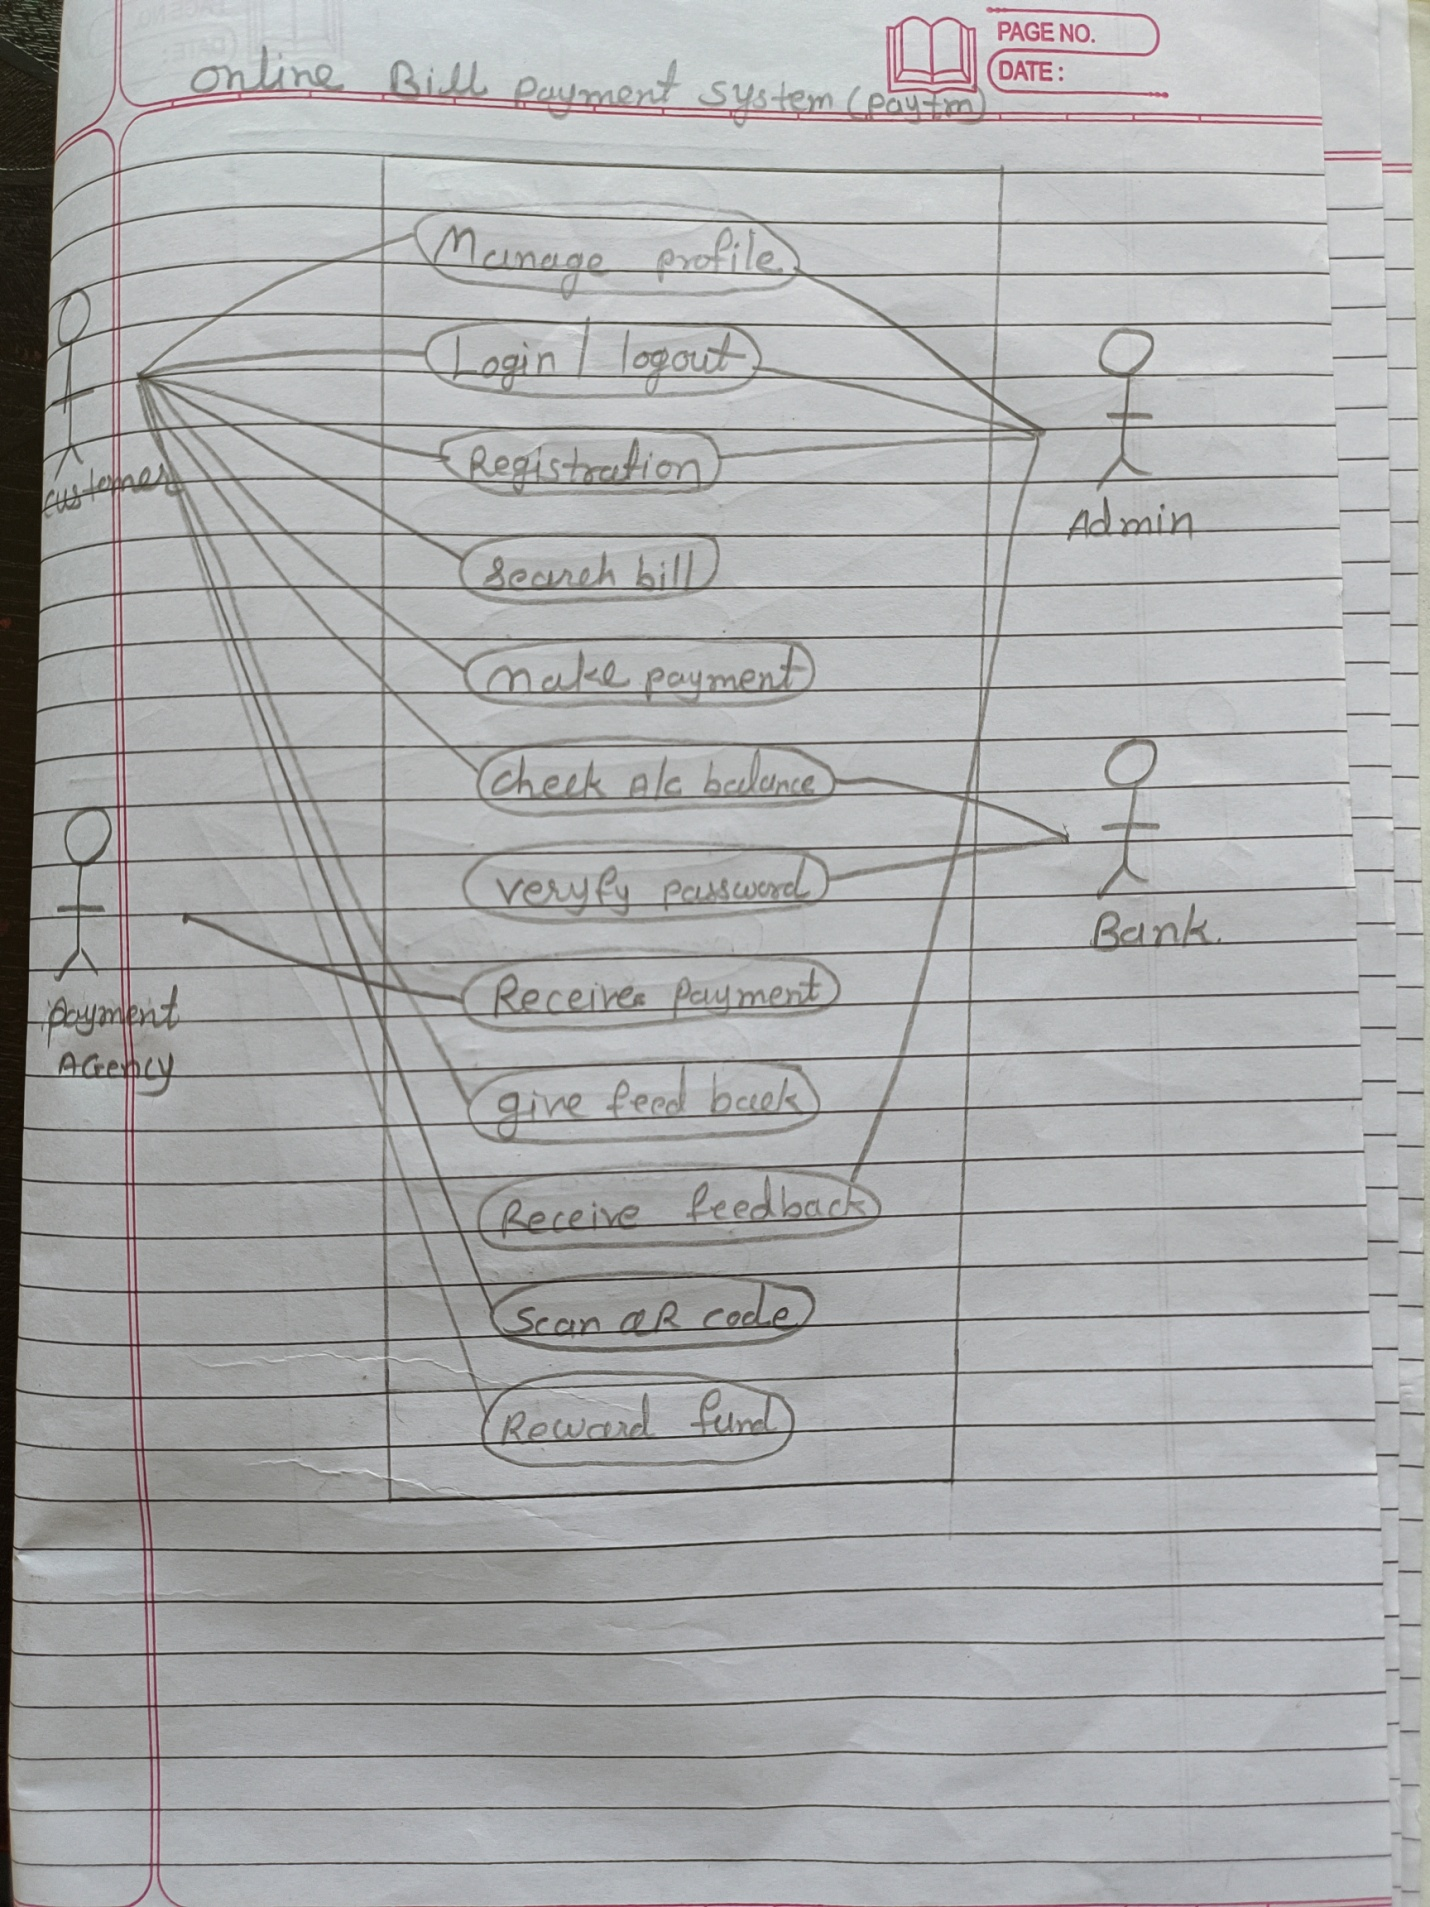 PAGE NO.
DATE :
Online Bill Payment System (paytm)
Manage profile
Login / logout
Registration
Search bill
Make payment
Check A/c balance
Veryfy password
Receive payment
give feed back
Receive feedback
Scan QR code
Reward fund
Customer
Payment
Agency
Admin
Bank.